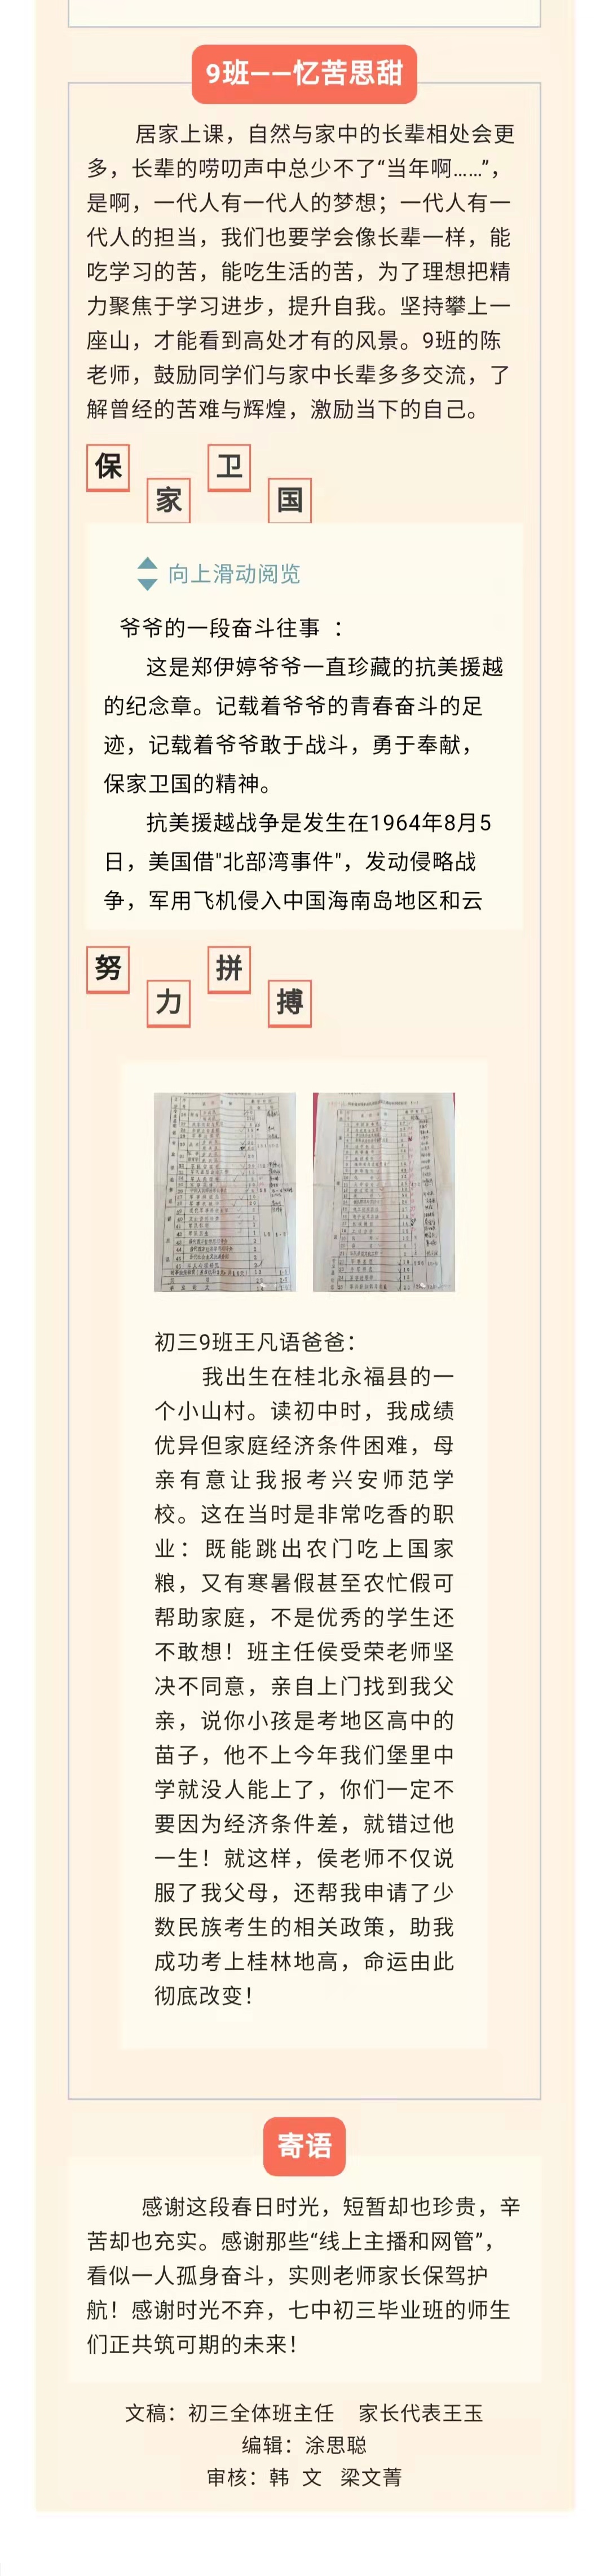 9班——忆苦思甜
居家上课，自然与家中的长辈相处会更
多，长辈的唠叨声中总少不了“当年啊……”，
是啊，一代人有一代人的梦想；一代人有一
代人的担当，我们也要学会像长辈一样，能
吃学习的苦，能吃生活的苦，为了理想把精
力聚焦于学习进步，提升自我。坚持攀上一
座山，才能看到高处才有的风景。9班的陈
老师，鼓励同学们与家中长辈多多交流，了
解曾经的苦难与辉煌，激励当下的自己。
保家卫国
向上滑动阅览
爷爷的一段奋斗往事 ：
这是郑伊婷爷爷一直珍藏的抗美援越
的纪念章。记载着爷爷的青春奋斗的足
迹，记载着爷爷敢于战斗，勇于奉献，
保家卫国的精神。
抗美援越战争是发生在1964年8月5
日，美国借"北部湾事件"，发动侵略战
争，军用飞机侵入中国海南岛地区和云
努力拼搏
初三9班王凡语爸爸：
我出生在桂北永福县的一
个小山村。读初中时，我成绩
优异但家庭经济条件困难，母
亲有意让我报考兴安师范学
校。这在当时是非常吃香的职
业：既能跳出农门吃上国家
粮，又有寒暑假甚至农忙假可
帮助家庭，不是优秀的学生还
不敢想！班主任侯受荣老师坚
决不同意，亲自上门找到我父
亲，说你小孩是考地区高中的
苗子，他不上今年我们堡里中
学就没人能上了，你们一定不
要因为经济条件差，就错过他
一生！就这样，侯老师不仅说
服了我父母，还帮我申请了少
数民族考生的相关政策，助我
成功考上桂林地高，命运由此
彻底改变！
寄语
感谢这段春日时光，短暂却也珍贵，辛
苦却也充实。感谢那些“线上主播和网管”，
看似一人孤身奋斗，实则老师家长保驾护
航！感谢时光不弃，七中初三毕业班的师生
们正共筑可期的未来！
文稿：初三全体班主任 家长代表王玉
编辑：涂思聪
审核：韩 文 梁文菁